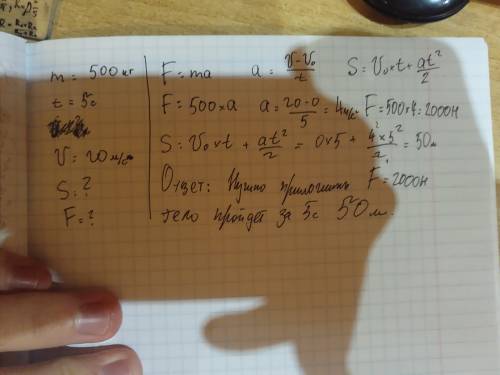 m = 500 кг
t = 5с
V = 20 м/с
S = ?
F = ?
F = ma a = V-V₀/t S = V₀×t + at²/2
F = 500×a a = 20-0/5 = 4м/с² F = 500×4 = 2000Н
S = V₀×t + at²/2 = 0×5 + 4×5²/2 = 50м
Ответ: Нужно приложить F = 2000Н
тело пройдёт за 5с 50м.